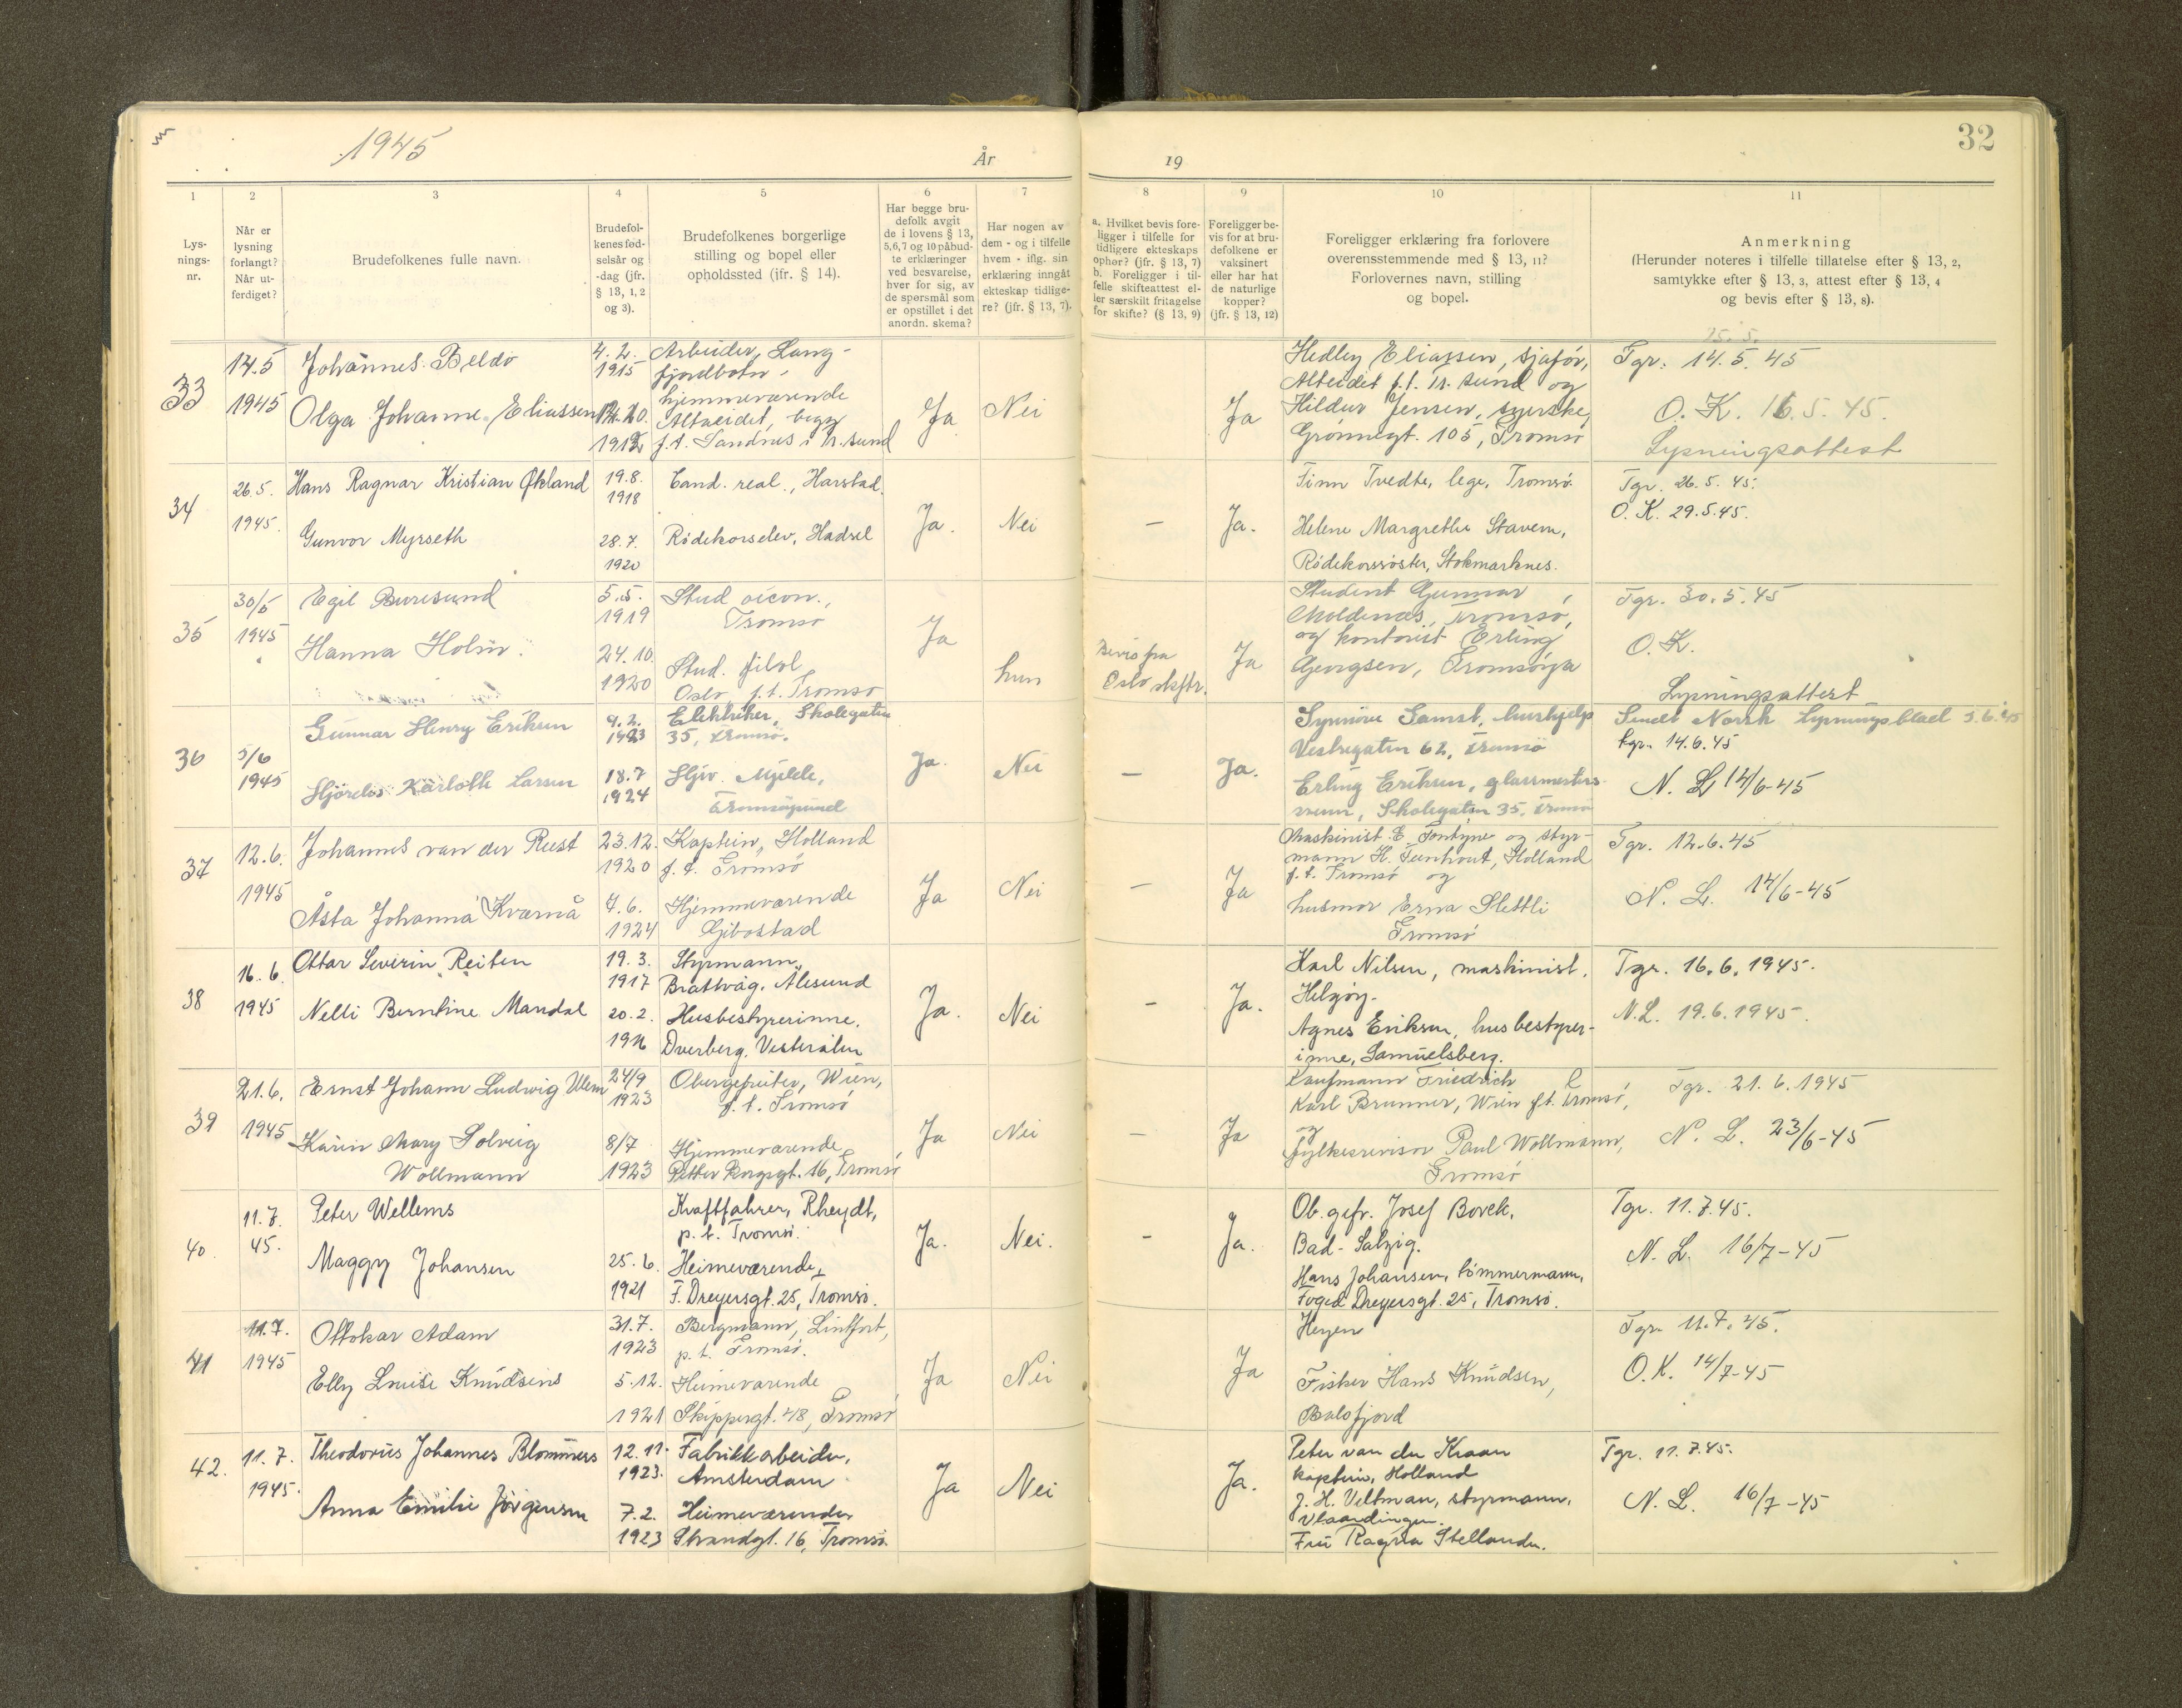 1945
År
19
32
1
2
3
4
5
6
7
8
9
10
11
Lys-
nings-
nr.
Når er
lysning
forlangt?
Når ut-
ferdiget?
Brudefolkenes fulle navn.
Brudefol-
kenes fød-
selsår og
-dag (jfr.
§ 13, 1, 2
og 3).
Brudefolkenes borgerlige
stilling og bopel eller
opholdssted (jfr. § 14).
Har begge bru-
defolk avgit
de i lovens § 13,
5,6,7 og 10 påbud-
te erklæringer
ved besvarelse,
hver for sig, av
de spørsmål som
er opstillet i det
anordn. skema?
Har nogen av
dem - og i tilfelle
hvem - iflg. sin
erklæring inngåt
ekteskap tidlige-
re? (jfr. § 13, 7).
a. Hvilket bevis fore-
ligger i tilfelle for
tidligere ekteskaps
ophør? (jfr. § 13, 7)
b. Foreligger i til-
felle skifteattest el-
ler særskilt fritagelse
for skifte? (§ 13, 9)
Foreligger be-
vis for at bru-
defolkene er
vaksinert
eller har hat
de naturlige
kopper?
(jfr. § 13, 12)
Foreligger erklæring fra forlovere
overensstemmende med § 13, 11?
Forlovernes navn, stilling
og bopel.
Anmerkning
(Herunder noteres i tilfelle tillatelse efter § 13, 2,
samtykke efter § 13, 3, attest efter § 13, 4
og bevis efter § 13, 8).
33
14.5
1945
Johannes Beldo
Olga Johanne Eliassen
4.2.
1915
1912
Arbeider, Lang-
fjordbotn
hjemmeværende
Alteidet, begge
f.t. Sandnes i Tr.sund
Ja
Nei
Ja
Hedley Eliassen, sjafør,
Alteidet f.t. Tr. sund og
Hildur Jensen, syerske,
Grønnegt. 105, Tromsø
25.5.
Tgr. 14.5.45
O.K. 16.5.45.
Lysningsattest
34
26.5.
1945.
Hans Ragnar Kristian Økland
Gunvor Myrseth
19.8.
1918
28.7.
1920
Cand. real., Harstad.
Rødekorselev, Hadsel
Ja.
Nei
—
Ja.
Finn Tvedte, lege, Tromsø.
Helene Margrethe Stavem,
Rødekorssøster, Stokmarknes.
Tgr. 26.5.45.
O.K. 29.5.45.
35
30/5
1945
Egil Buresund
Hanna Holm.
5.5.
1919
24.10.
1920
Stud oecon.,
Tromsø
Stud. filol
Oslo f.t. Tromsø
Ja
hun
Bevis fra
Oslo skftr.
Ja
Student Gunnar
Moldenæs, Tromsø,
og kontorist Erling
Georgsen, Tromsøya
Tgr. 30.5.45
O.K.
Lysningsattest
36
5/6
1945
Gunnar Henry Eriksen
Hjørdis Karlotte Larsen
9.2.
1923
18.7
1924
Elektriker, Skolegaten
35, Tromsø.
Hjv. Mjelde,
Tromsøysund
Ja.
Nei
—
Ja.
Synnøve Samst, hushjelp
Vestregaten 62, Tromsø
Erling Eriksen, glassmesters-
svenn, Skolegaten 35, Tromsø
Sendt Norsk Lysningsblad 5.6.45
tgr. 14.6.45
N. L. 14/6-45
37
12.6.
1945
Johannes van der Rust
Åsta Johanna Kvernå
23.12.
1920
7.6.
1924
Kaptein, Holland
f.t. Tromsø
Hjemmeværende
Gibostad
Ja
Nei
—
Ja
Maskinist E. Fontyne og styr-
mann H. Teenhout, Holland
f.t. Tromsø og
husmor Erna Slettli
Tromsø
Tgr. 12.6.45
N. L. 14/6-45
38
16.6.
1945
Ottar Severin Reiten
Nelli Berntine Mandal
19.3.
1917
20.2.
1916
Styrmann,
Brattvåg. Ålesund
Husbestyrerinne.
Dverberg. Vesterålen
Ja.
Nei
—
Ja.
Karl Nilsen, maskinist.
Helgøy.
Agnes Eriksen, husbestyrer-
inne, Samuelsberg.
Tgr. 16.6.1945.
N.L. 19.6.1945.
39
21.6.
1945
Ernst Johann Ludwig Ulem
Karin Mary Solveig
Wollmann
24/9
1923
8/7
1923
Obergefreiter, Wien,
f.t. Tromsø
Hjemmeværende,
Petter Borgsgt. 16, Tromsø
Ja
Nei
—
Ja
Kaufmann Friedrich
Karl Brunner, Wien f.t. Tromsø,
og
fylkesrevisor Paul Wollmann,
Tromsø
Tgr. 21.6.1945
N. L. 23/6-45
40.
11.7.
45.
Peter Wellems
Maggy Johansen
25.6.
1921
Kraftfahrer, Rheydt,
p.t. Tromsø.
Heimeværende,
F. Dreyersgt. 25, Tromsø.
Ja.
Nei.
—
Ja.
Ob.gefr. Josef Borek,
Bad-Salzig.
Hans Johansen, tømmermann,
Foged Dreyersgt. 25, Tromsø.
Tgr. 11.7.45.
N. L. 16/7-45
41
11.7.
1945
Ottokar Adam
Elly Lovise Knudsens
31.7.
1923
5.12.
1921
Bergmann, Lintfort,
p.t. Tromsø.
Heimeværende
Skippergt. 48, Tromsø
Ja
Nei
Ja
Heyen
Fisker Hans Knudsen,
Balsfjord
Tgr. 11.7.45.
O.K. 14/7-45
42.
11.7.
1945.
Theodorus Johannes Blommers
Anna Emilie Jørgensen
12.11.
1923.
7.2.
1923
Fabrikkarbeider,
Amsterdam
Heimeværende,
Strandgt. 16, Tromsø.
Ja
Nei
Ja.
Peter van der Kraan
kaptein, Holland
J. H. Veltman, styrmann,
Vlaardingen.
Fru Ragna Stellander.
Tgr. 11.7.45.
N. L. 16/7-45